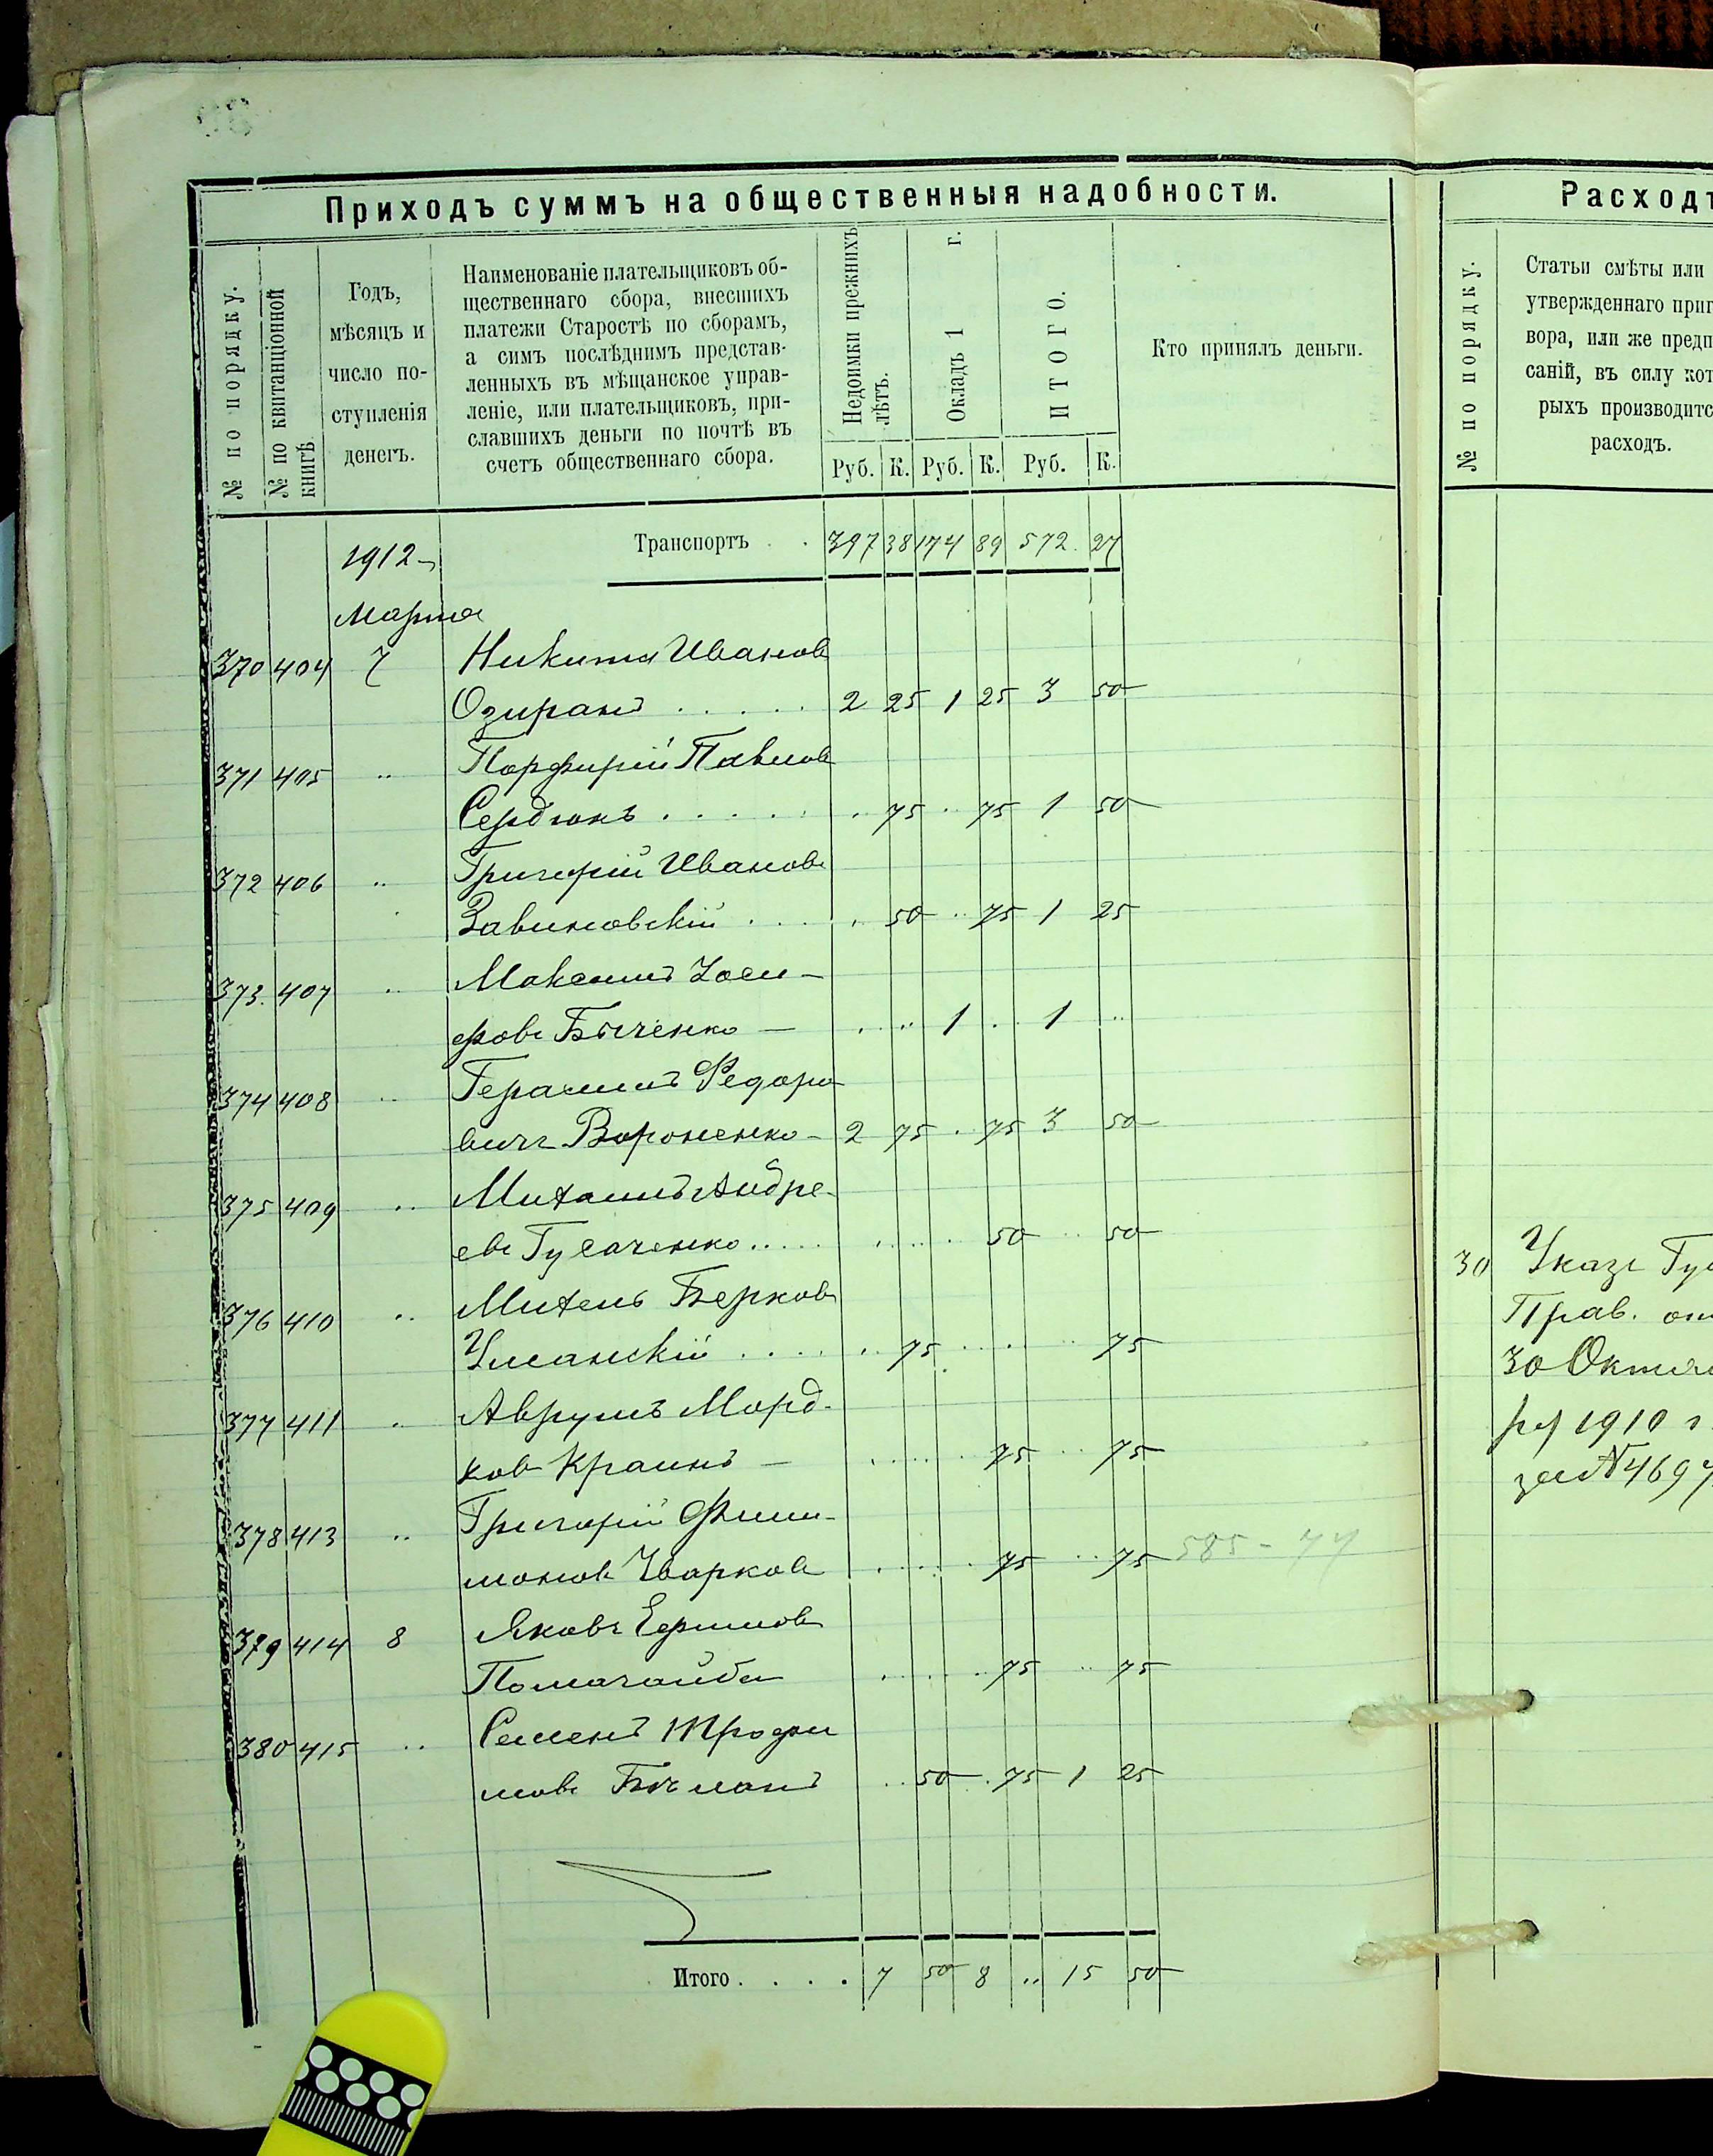 Приходъ суммъ на общественныя надобности.
№ по порядку.
№ по квитанціонной
книгѣ
Годъ,
мѣсяцъ и
число по-
ступленія
денегъ.
Наименованіе плательщиковъ об-
щественнаго сбора, внесшихъ
платежи Старостѣ по сборамъ,
а симъ послѣднимъ представ-
ленныхъ въ мѣщанское управ-
леніе, или плательщиковъ, при-
славшихъ деньги по почтѣ въ
счетъ общественнаго сбора.
Недоимки прежнихъ
лѣтъ.
Окладъ 1 г.
ИТОГО.
Кто принялъ деньги.
Руб. К. Руб. К. Руб. К.
1912
Транспортъ . . 397 38 174 89 572 27
Марта
370 404 7 Никита Иванов
Озиранъ . . . . . 2 25 1 25 3 50
371 405 " Порфирій Павлов
Сердюкъ . . . . . 75 75 1 50
372 406 " Григорій Иванов
Завиновскій . . . 50 75 1 25
373. 407 " Максимъ Іоси-
фовъ Быченко — 1 1 "
374 408 " Герасимъ Федоро
вичъ Вороненко - 2 75 75 3 50
375 409 " Михаилъ Андре-
евъ Гусаченко . . . . . 50 50
376 410 " Михель Берков
Уманскій . . . . 75 75
377 411 " Аврумъ Морд-
ков Краинъ — 75 75
378 413 " Григорій Фили-
монов Чварков 75 75 585 - 77
379 414 8 Яковъ Ефимов
Помагайба 75 75
380 415 " Семенъ Трофи
мовъ Бычманъ 50 75 1 25
Итого . . . . 7 50 8 " 15 50
Расходъ
№ по порядку.
Статьи смѣты или
утвержденнаго приг
вора, или же предп
саній, въ силу кот
рыхъ производитс
расходъ.
30 Указъ Гу
Прав. от
30 Октя
ря 1910 г.
за № 4697